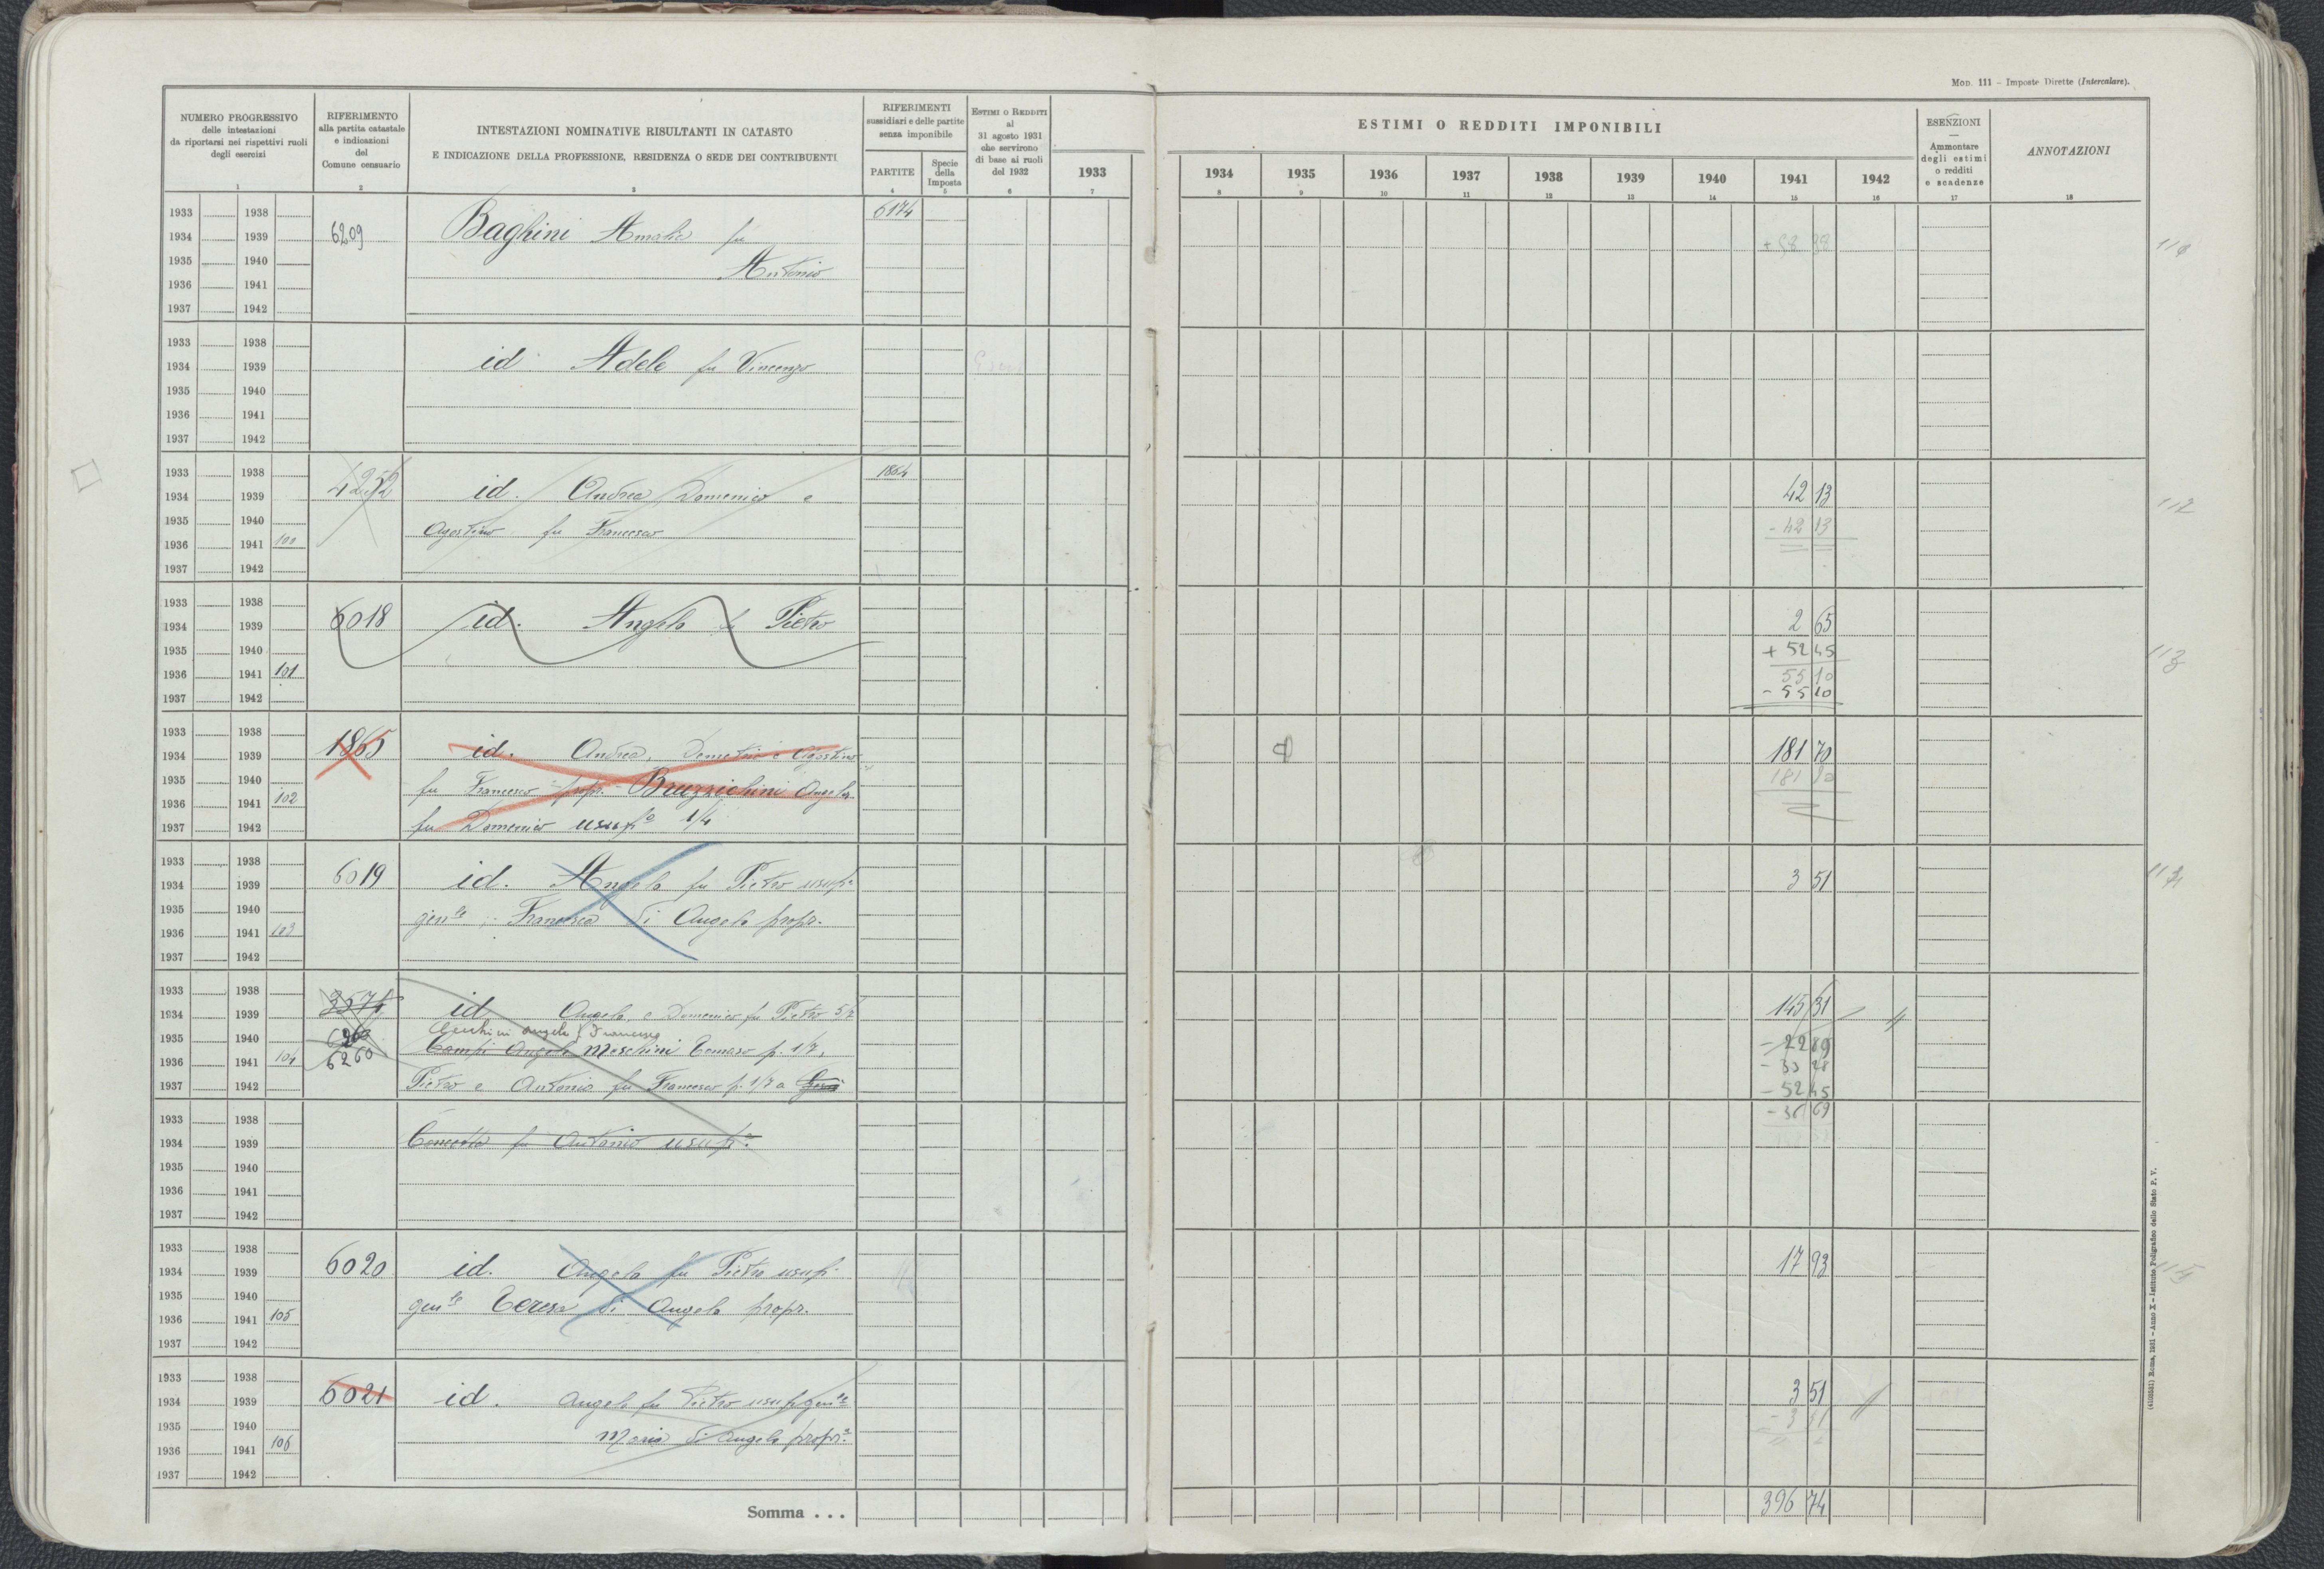 Mod. 111 – Imposte Dirette (Intercalare).
NUMERO PROGRESSIVO
delle intestazioni
da riportarsi nei rispettivi ruoli
degli esercizi
1
RIFERIMENTO
alla partita catastale
e indicazioni
del
Comune censuario
2
INTESTAZIONI NOMINATIVE RISULTANTI IN CATASTO
E INDICAZIONE DELLA PROFESSIONE, RESIDENZA O SEDE DEI CONTRIBUENTI
3
RIFERIMENTI
sussidiari e delle partite
senza imponibile
PARTITE
4
Specie
della
Imposta
5
ESTIMI O REDDITI
al
31 agosto 1931
che servirono
di base ai ruoli
del 1932
6
1933
7
ESTIMI O REDDITI IMPONIBILI
1934 1935 1936 1937 1938 1939 1940 1941 1942
8 9 10 11 12 13 14 15 16
ESENZIONI
—
Ammontare
degli estimi
o redditi
e scadenze
17
ANNOTAZIONI
18
1933 1938 6174
1934 1939 6209 Baghini Amalia fu
1935 1940 Antonio
1936 1941
1937 1942
1933 1938
1934 1939 id Adele fu Vincenzo
1935 1940
1936 1941
1937 1942
1933 1938 1864
1934 1939 4252 id. Andrea, Domenico e 42 13
1935 1940 Agostino fu Francesco - 42 13
1936 1941 100
1937 1942
112
1933 1938
1934 1939 6018 id. Angelo fu Pietro 2 65
1935 1940 + 52 45
1936 1941 101 55 10
1937 1942 - 55 10
113
1933 1938
1934 1939 1865 id. Andrea, Domenico e Agostino 181 70
1935 1940 fu Francesco propr. - Bruzzichini Angela
1936 1941 102
1937 1942 fu Domenico usuf.º 1/4
1933 1938
1934 1939 6019 id. Angelo fu Pietro usuf. 3 51
1935 1940 gen.le Francesca di Angelo propr.
1936 1941 103
1937 1942
1933 1938 3574
1934 1939 id Angelo, e Domenico fu Pietro 5/7 145 31
Cecchini Angelo f. Francesco
1935 1940 6260 Campi Angelo Moschini Tomaso p. 1/7, - 22 89
1936 1941 104 6260 - 33 28
1937 1942 Pietro e Antonio fu Francesco p. 1/7 a - 52 45
1933 1938 - 36 69
1934 1939 Concetta fu Antonio usuf.
1935 1940
1936 1941
1937 1942
1933 1938
1934 1939 6020 id. Angelo fu Pietro usuf. 17 93
1935 1940 gen.le Teresa di Angelo propr.
1936 1941 105
1937 1942
1933 1938
1934 1939 6021 id. Angelo fu Pietro usuf. gen.le 3 51
1935 1940 - 3 51
1936 1941 106 Maria di Angelo propr.
1937 1942
Somma . . . 396 74
(4103531) Roma, 1931 – Anno X – Istituto Poligrafico dello Stato P. V.